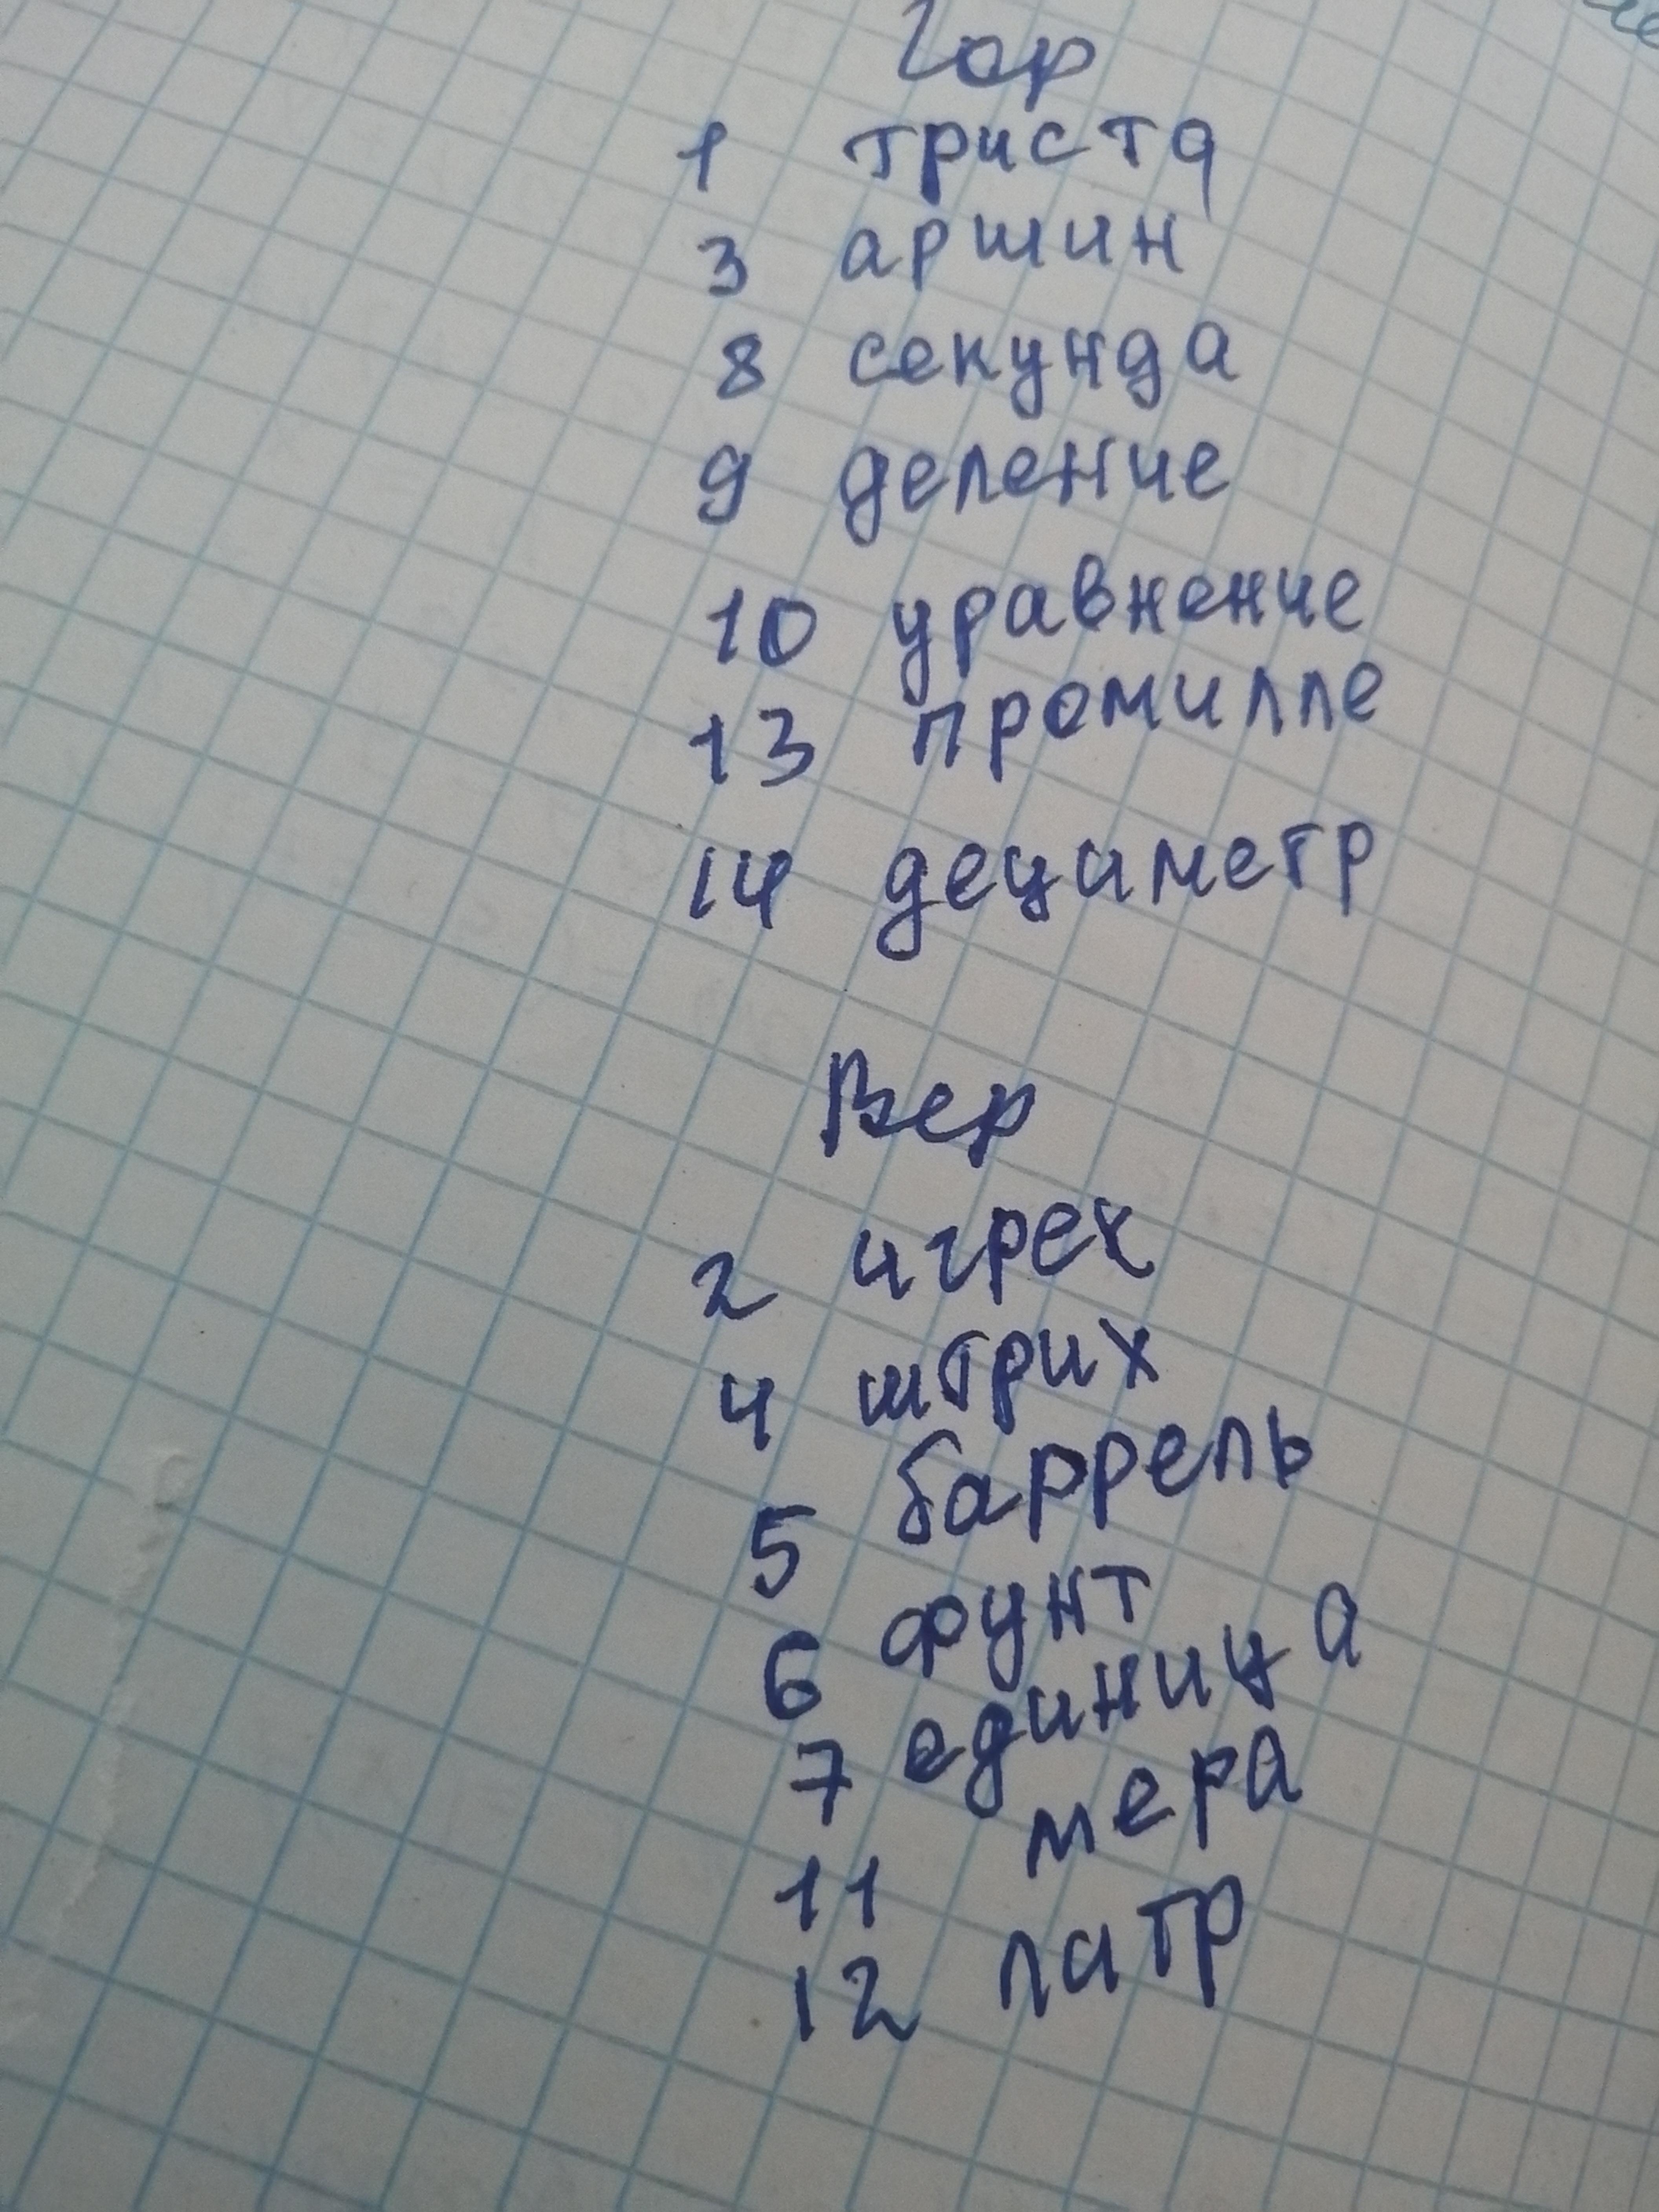 Гор
1 триста
3 аршин
8 секунда
9 деление
10 уравнение
13 промилле
14 дециметр
Вер
2 игрек
4 штрих
5 баррель
6 фунт
7 единица
11 мера
12 литр